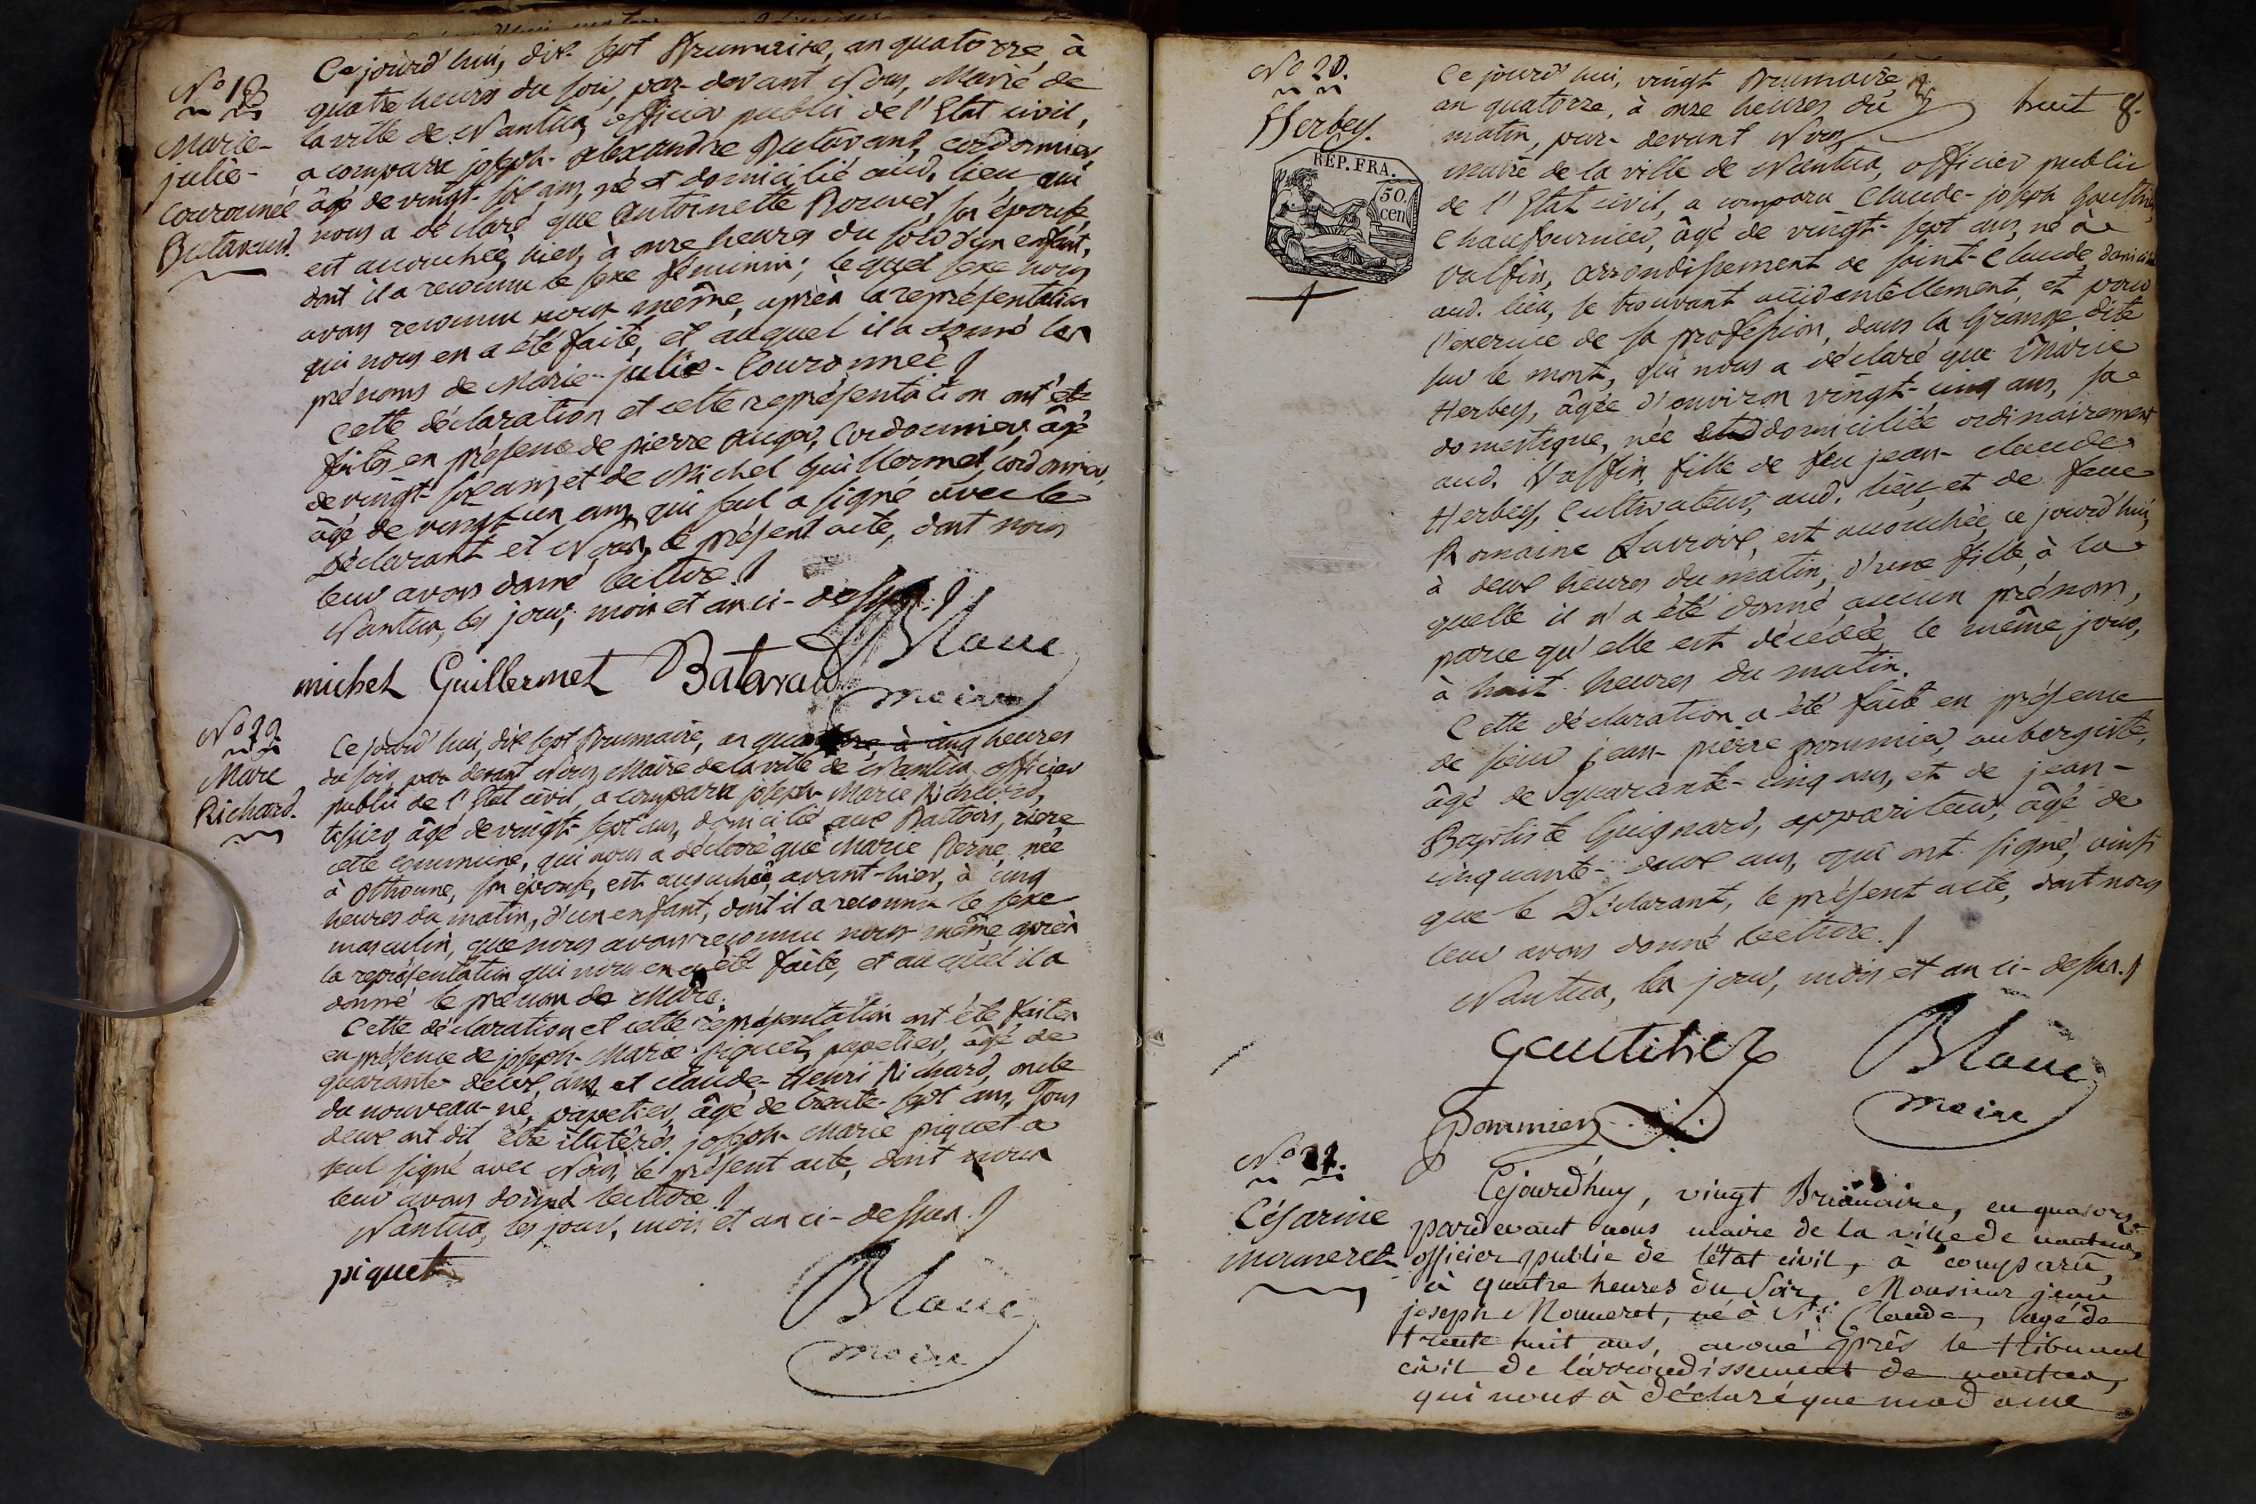 No 18
Marie-
julie-
couronnée
Batavand.
Ce jourd'hui, dix-sept Brumaire, an quatorze, à
quatre heures du soir, par-devant Nous, Maire de
la ville de Nantua, officier public de l'Etat civil,
a comparu joseph-alexandre Batavand, cordonnier,
âgé de vingt-six ans, né et domicilié aud. lieu qui
nous a déclaré que antoinette Rouvet, son épouse
est accouchée, hier, à onze heures du soir d'un enfant,
dont il a reconnu le sexe féminin; lequel sexe nous
avons reconnu nous même, après la représentation
qui nous en a été faite, et auquel il a donné les
prénoms de Marie-julie-Couronnée.
Cette déclaration et cette représentation ont été
faites en présence de pierre auger, Cordonnier, âgé
de vingt-six ans, et de Michel Guillermet, cordonnier,
âgé de vingt un ans, qui seul a signé avec le
Déclarant et Nous, le présent acte, dont nous
leur avons donné lecture.
Nantua, les jour, mois et an ci-dessus.
michel Guillermet Batavand Blanc
maire
No 19
Marc
Richard.
Ce jourd'hui, dix sept Brumaire, an quatorze, à cinq heures
du soir, par devant Nous, Maire de la ville de Nantua, officier
public de l'Etat civil, a comparu joseph-Marie Richard,
tissier, âgé de vingt-sept ans, domicilié aux Battoirs, rière
cette commune, qui nous a déclaré que Marie Berne, née
à Othonne, son épouse, est accouchée, avant-hier, à cinq
heures du matin, d'un enfant, dont il a reconnu le sexe
masculin, que nous avons reconnu nous même après
la représentation qui nous en a été faite, et auquel il a
donné le prénom de Marc.
Cette déclaration et cette représentation ont été faites
en présence de joseph-Marie piquet, papetier, âgé de
quarante-deux ans, et claude-Henri Richard, oncle
du nouveau-né, papetier, âgé de trente-sept ans. Tous
deux ont dit être illitérés joseph-Marie piquet a
seul signé avec Nous, le présent acte, dont nous
leur avons donné lecture.
Nantua, les jour, mois et an ci-dessus.
piquet
Blanc
maire
No 20.
Herbey.
REP. FRA.
50.
cen
huit 8.
Ce jourd'hui, vingt Brumaire,
an quatorze, à onze heures du
matin, par-devant Nous,
maire de la ville de Nantua, officier public
de l'Etat civil, a comparu Claude-joseph
Chaufournier, âgé de vingt-sept ans, né à
valfin, arrondissement de saint-Claude, domicilié
aud. lieu, se trouvant accidentellement, et pour
l'exercice de sa profession, dans la Grange dite
sur le mont, qui nous a déclaré que Marie
Herbey, âgée d'environ vingt-cinq ans, sa
domestique, née domiciliée ordinairement
aud. Valfin, fille de feu jean-claude
Herbey, Cultivateur, aud. lieu, et de feue
Romaine Lavroix, est accouchée, ce jourd'hui,
à deux heures du matin, d'une fille, à la
quelle il n'a été donné aucun prénom,
parce qu'elle est décédée, le même jour,
à huit heures du matin.
Cette déclaration a été faite en présence
de sieur jean-pierre pommier, aubergiste,
âgé de quarante-cinq ans, et de jean-
Baptiste Guignard, appariteur, âgé de
cinquante-deux ans, qui ont signé, ainsi
que le Déclarant, le présent acte, dont nous
leur avons donné lecture.
Nantua, les jour, mois et an ci-dessus.
Blanc
maire
pommier
No 21.
Césarine
monneret
Cejourd'huy, vingt Brumaire, en quatorze
pardevant nous maire de la ville de nantua,
officier public de l'état civil, à comparu,
à quatre heures du Soir, Monsieur jean
joseph Monneret, né à St. Claude, agé de
trente huit ans, avoué près le tribunal
civil de l'arrondissement de nantua,
qui nous à déclaré que madame